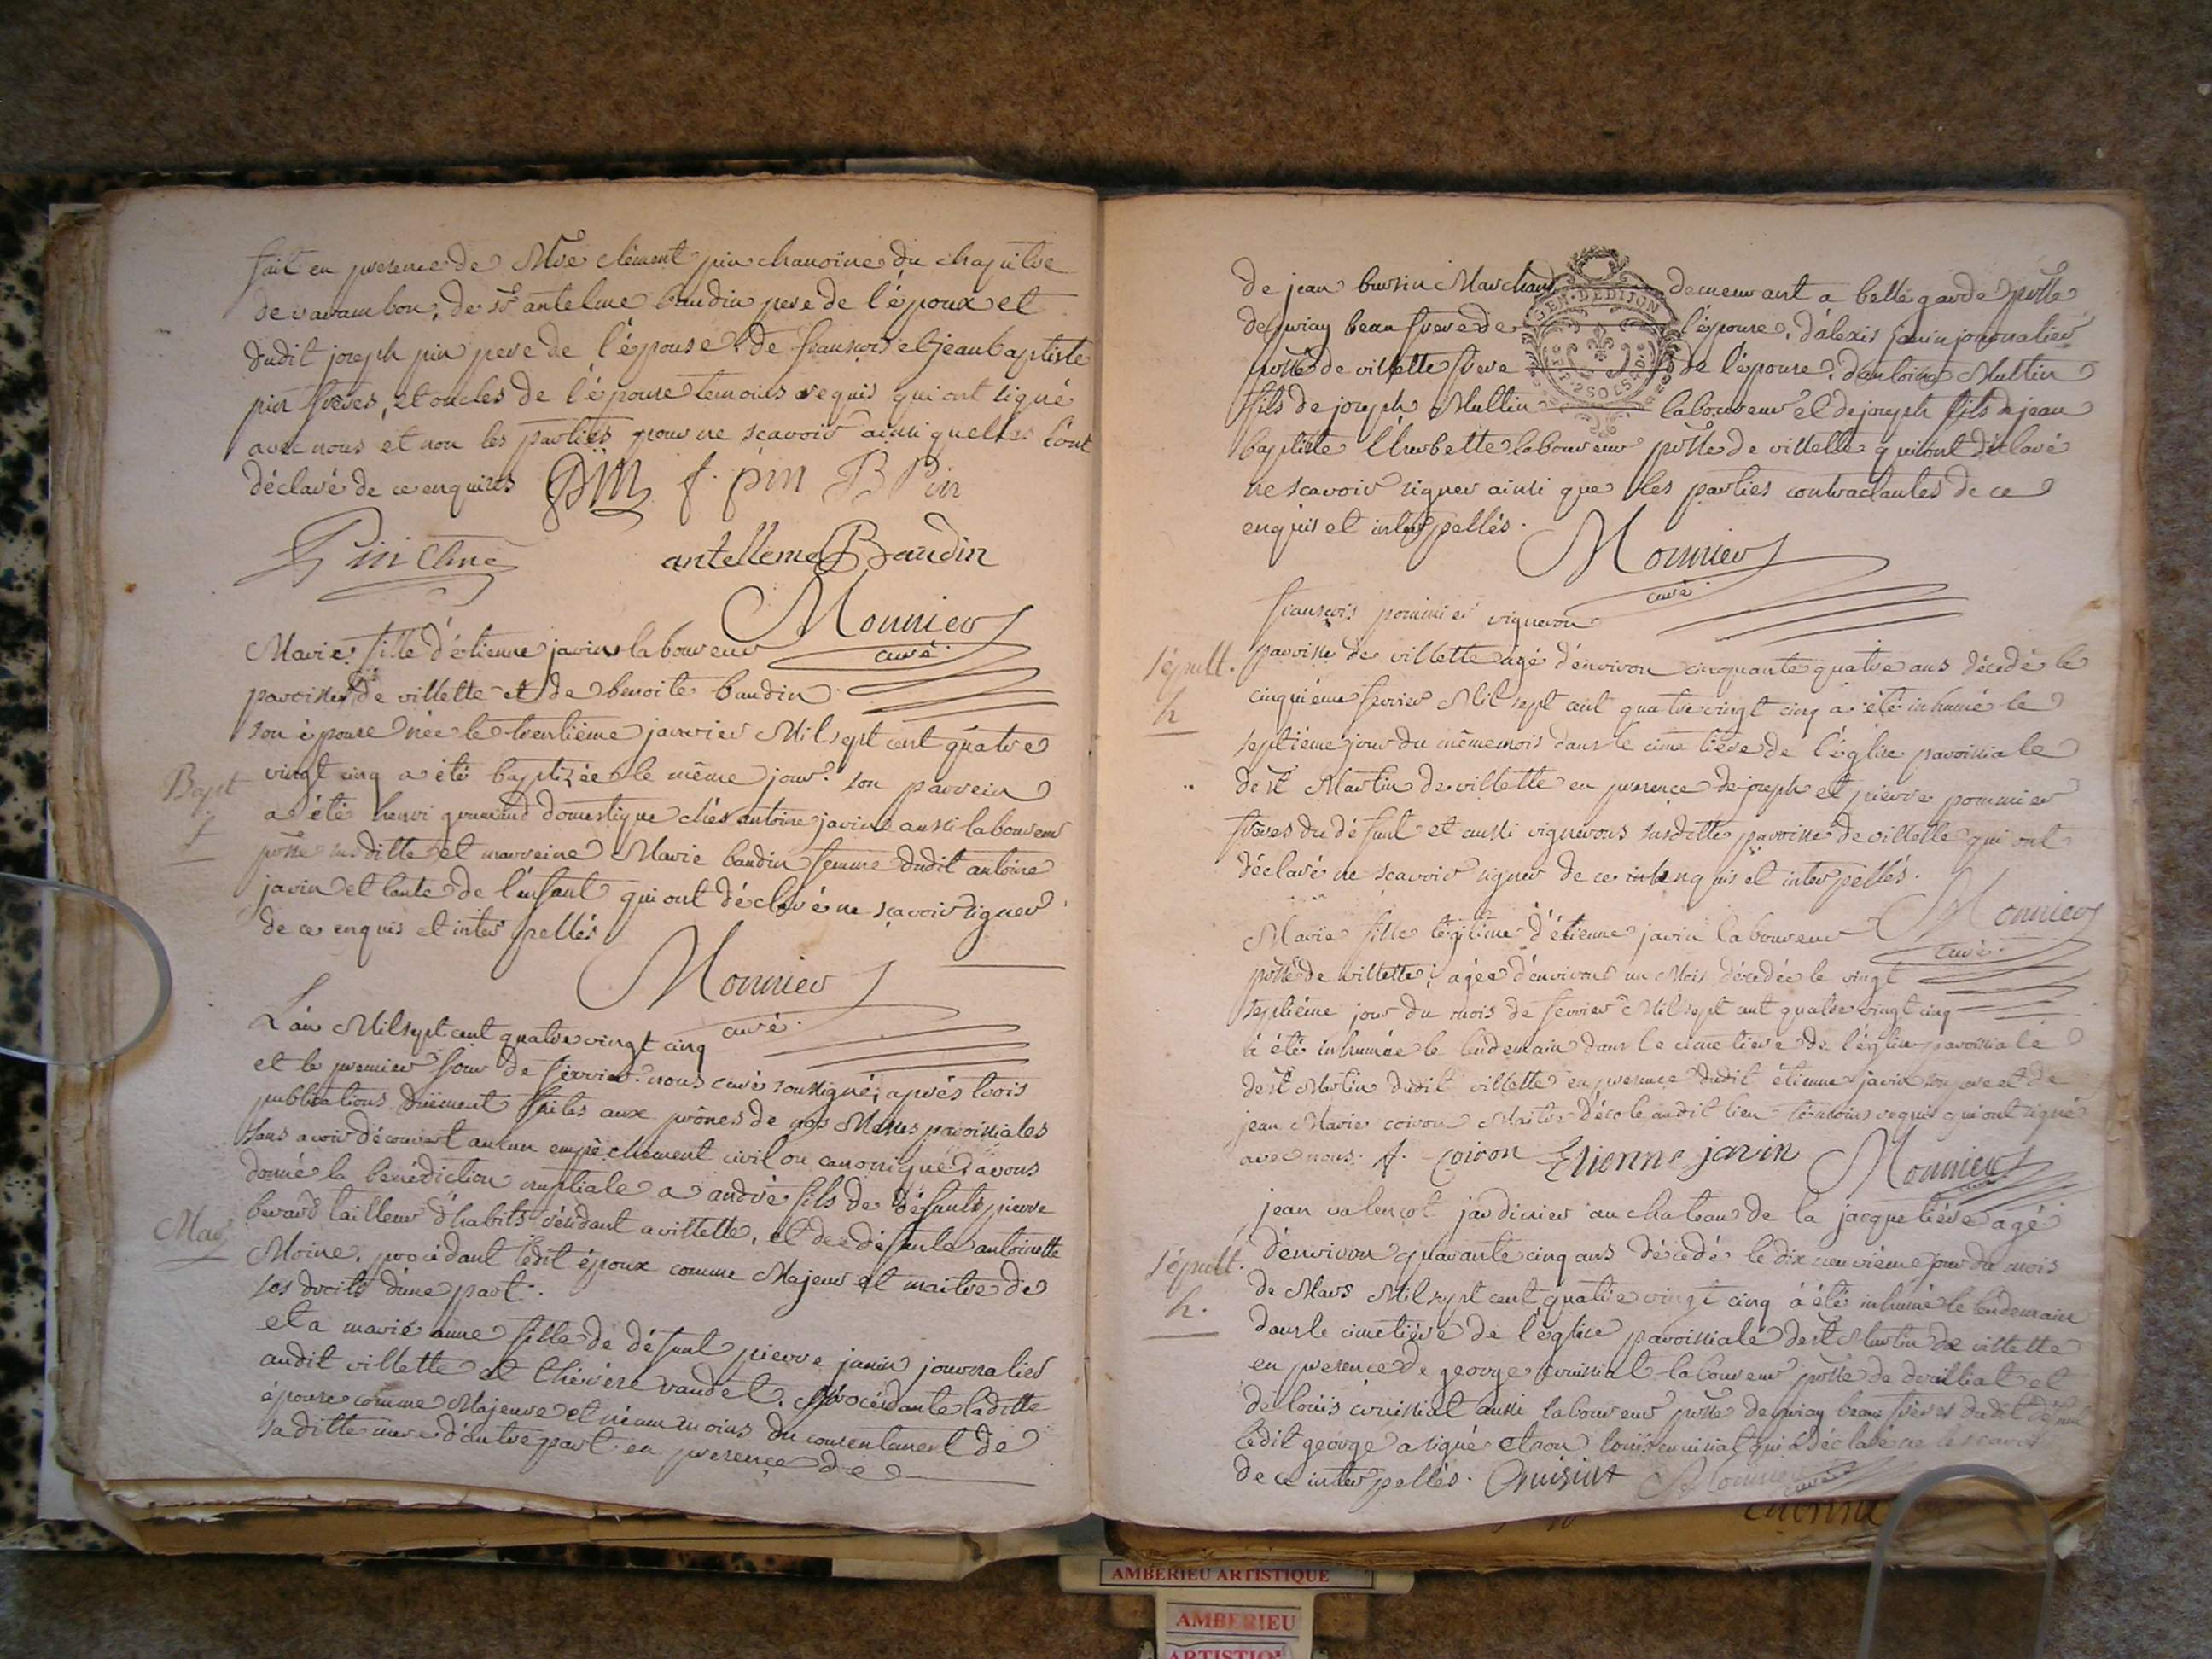 fait en presence de Mre clément pin chanoine du chapitre
de varambon, de sr antelme baudin pere de l'époux et
dudit joseph pin pere de l'épouse, de françois et jean baptiste
pin freres, et oncles de l'épouse temoins requis qui ont signé
avec nous et non les parties pour ne scavoir ainsi quelles l'ont
déclaré de ce enquises Pin f. pin B Pin
Pin Chne antelleme Baudin
Monnier
curé
Marie fille d'étienne javin laboureur
paroisse de villette et de benoite baudin
son épouse née le trentième janvier Mil sept cent quatre
vingt cinq a été baptizée le même jour. son parrein
Bapt
f
a été henri domestique chés antoine javin aussi laboureur
psse susditte et marreine Marie baudin femme dudit antoine
javin et tante de l'enfant qui ont déclaré ne sçavoir signer
de ce enquis et inter pellés
Monnier
curé
L'an Mil sept cent quatre vingt cinq
et le premier jour de fevrier nous curé soussigné, après trois
publications düement faites aux prônes de nos Messes paroissiales
sans avoir découvert aucun empêchement civil ou canonique, avons
donné la bénédiction nuptiale a andré fils de défunts pierre
berard tailleur d'habits résidant a villette, et de défunte antoinette
Mag
Moine, procédant ledit époux comme Majeur et maitre de
ses droits d'une part.
et a marie anne fille de défunt pierre janin journalier
audit villette et thérèse vaudet, procédante laditte
épouse comme Majeure et néammoins du consentement de
saditte mere d'autre part. en presence de
de jean bursin Marchand demeurant a bellegarde psse
de priay beau frere de l'épouse, d'alexis janin journalier
psse de villette frere de l'épouse, d'antoine Multin
GEN. DE DIJON
fils de joseph Multin laboureur et de joseph fils de jean
baptiste laboureur psse de villette qui ont déclaré
ne scavoir signer ainsi que les parties contractantes de ce
enquis et interpellés.
Monnier
curé
françois pommier vigneron
Sépult.
h
paroisse de villette agé d'environ cinquante quatre ans décedé le
cinquième fevrier Mil sept cent quatre vingt cinq a été inhumé le
septième jour du même mois dans le cimetiere de l'église paroissiale
de st Martin de villette en presence de joseph et pierre pommier
freres du défunt et aussi vignerons susditte paroisse de villette qui ont
déclaré ne scavoir signer de ce enquis et interpellés.
Monnier
curé
Marie fille légitime d'étienne javin laboureur
psse de villette, agée d'environ un Mois décedée le vingt
septième jour du mois de fevrier Mil sept cent quatre vingt cinq
a été inhumée le lendemain dans le cimetiere de l'église paroissiale
de st Martin dudit villette en presence dudit étienne javin son pere et de
jean Marie coiron Maitre d'école audit lieu témoins requis qui ont signé
avec nous. J. Coiron Etienne javin Monnier
curé
jean valençot jardinier au chateau de la jacquetière agé
Sépult.
h.
d'environ quarante cinq ans décedé le dix neuvième jour du mois
de Mars Mil sept cent quatre vingt cinq a été inhumé le lendemain
dans le cimetière de l'église paroissiale de st Martin de villette
en presence de george cruisiat laboureur psse de druillat et
de loüis cruisiat aussi laboureur psse de priay beaux freres dudit défunt
ledit george a signé et non loüis cruisiat qui a déclaré ne le scavoir
de ce interpellés. Cruisiat Monnier
curé
AMBERIEU ARTISTIQUE
AMBERIEU
ARTISTIQUE